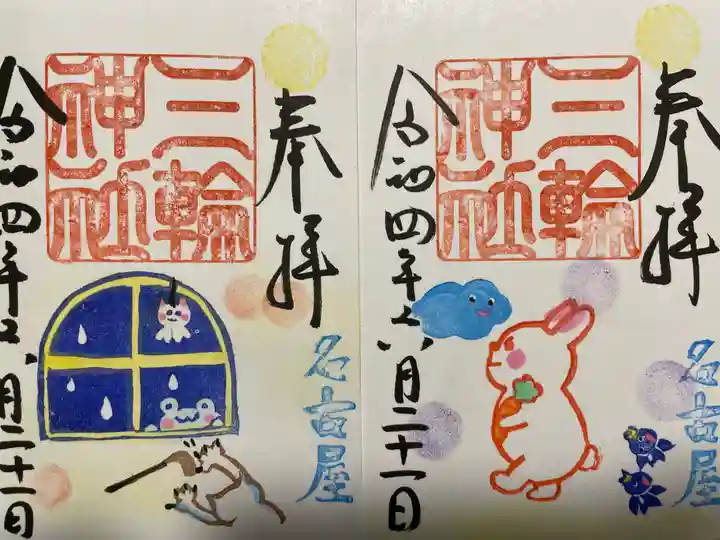 奉拝
三輪
神社
名古屋
令和四年六月二十一日
奉拝
三輪
神社
名古屋
令和四年六月二十一日